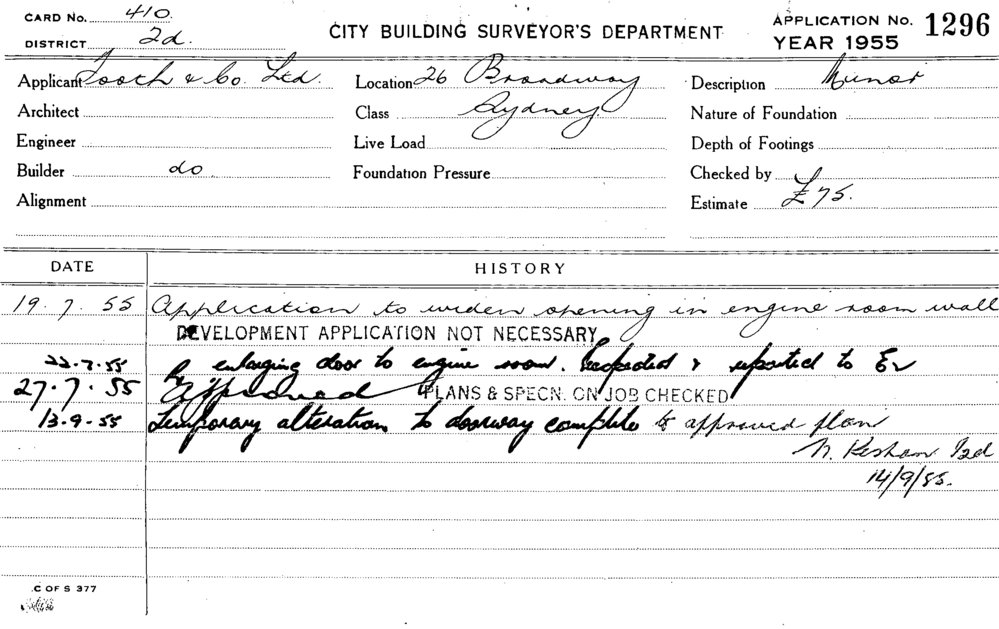 CARD No. 410
DISTRICT 2d.
CITY BUILDING SURVEYOR'S DEPARTMENT
APPLICATION No. 1296
YEAR 1955
Applicant Tooth & Co. Ltd.
Location 26 Broadway
Description Minor
Architect
Class Sydney
Nature of Foundation
Engineer
Live Load
Depth of Footings
Builder do
Foundation Pressure
Checked by
Alignment
Estimate £75.
DATE HISTORY
19. 7. 55 Application to widen opening in engine room wall
DEVELOPMENT APPLICATION NOT NECESSARY
22.7.55 enlarging door to engine room. Inspected & reported to
27.7.55 Approved PLANS & SPECN. ON JOB CHECKED
13.9.55 Temporary alteration to doorway complete to approved plan
14/9/55.
C OF S 377